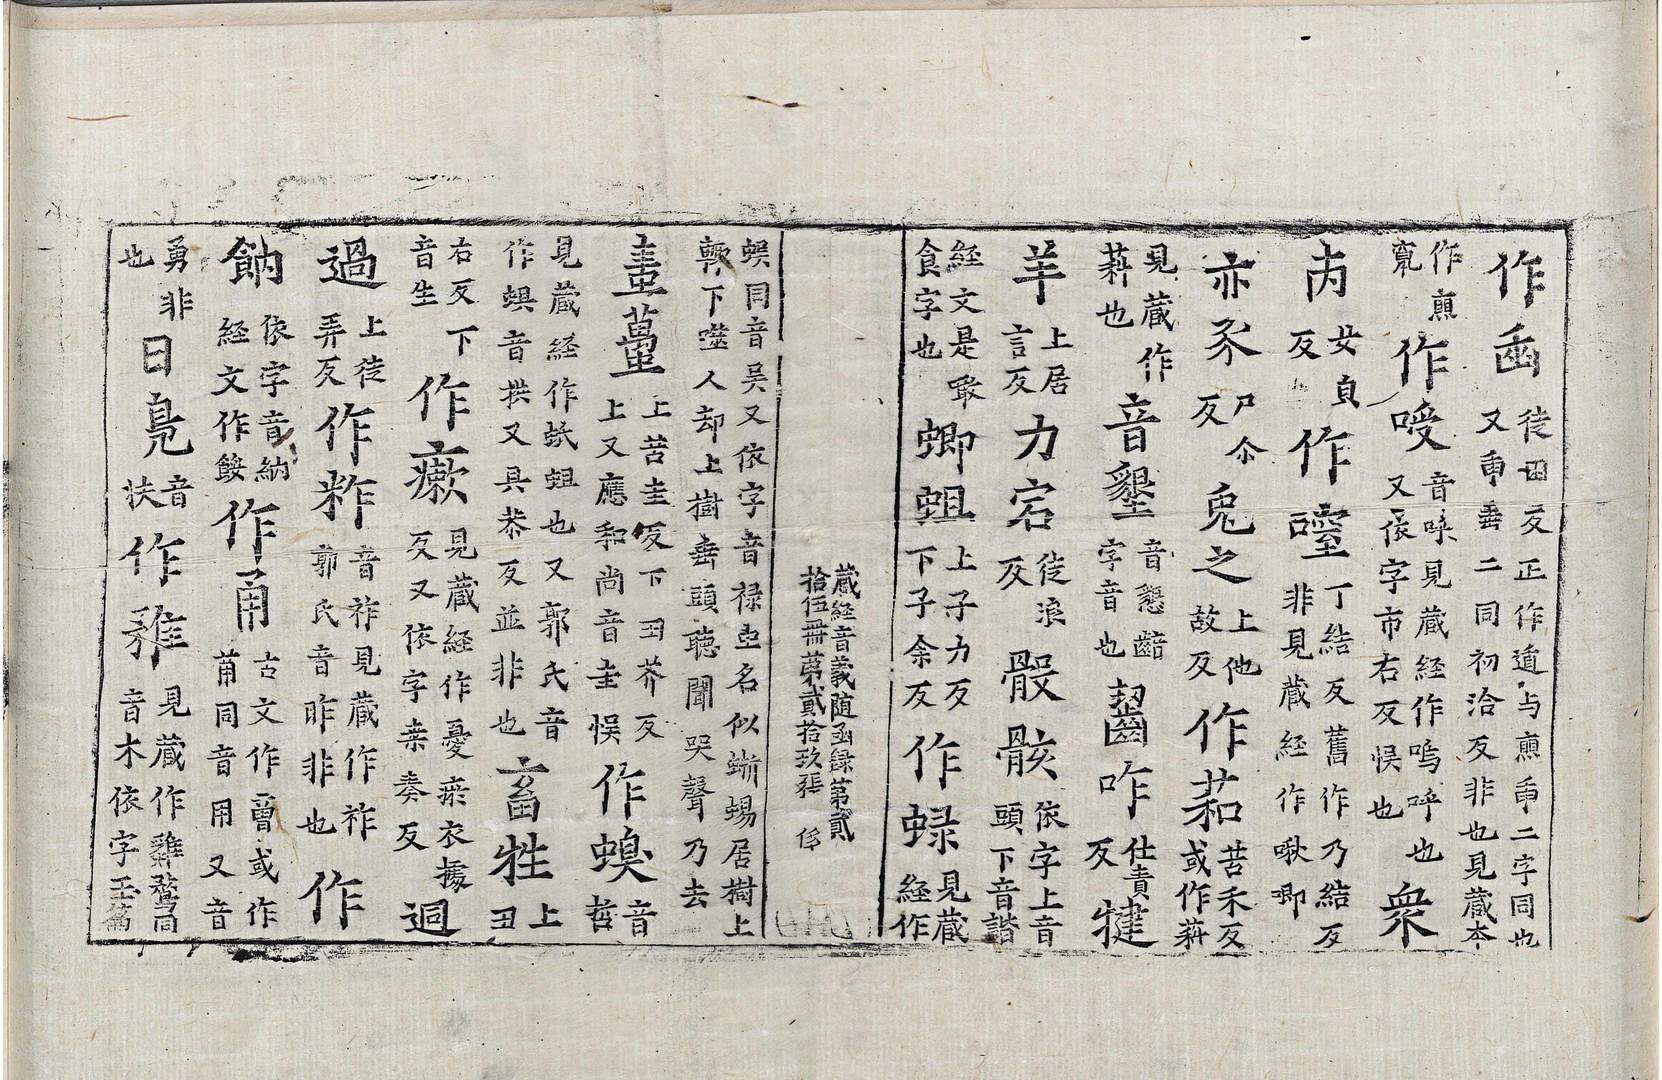 作凾徒田反正作逎与𠁅二字同也又臿𦥛二同初洽反非也見藏本
作𠁅作嗳音喚見藏經作嗚呼也又依字市右反悞也衆
内女貟反作𡄴丁結反舊作乃結反非見藏經作啾唧
亦尒尸尒反兎之上他故反作䒵苦禾反或作薪
見藏作薪也音墾音懇齧字音也齧咋仕責反犍
羊上居言反力宕徒浪反骰骸依字上音頭下音諧
經文是衆食字也蝍蛆上子力反下子余反作蟍見藏經作
藏經音義随函録第貳拾伍冊第貳拾玖張 侈
蜈同音吴又依字音禄虫名似蜥蜴居樹上
輙下噬人却上樹垂頭聽聞哭聲乃去
䖯蠆上苦圭反下丑芥反上又應和尚音圭悞作螝音哲
見藏經作蚔蛆也又郭氏音作蜞音拱又具恭反並非也畜牲上丑
右反下音生作瘷見藏經作憂瘀衣據反又依字桒奏反迵
過上徒弄反作粆音祚見藏作祚郭氏音昨非也作
䭃依字音納經文作餒作甬古文作𤰇或作莆同音用又音
勇非也日𠒎音扶作雞見藏作雞鶩同音木依字玉篇